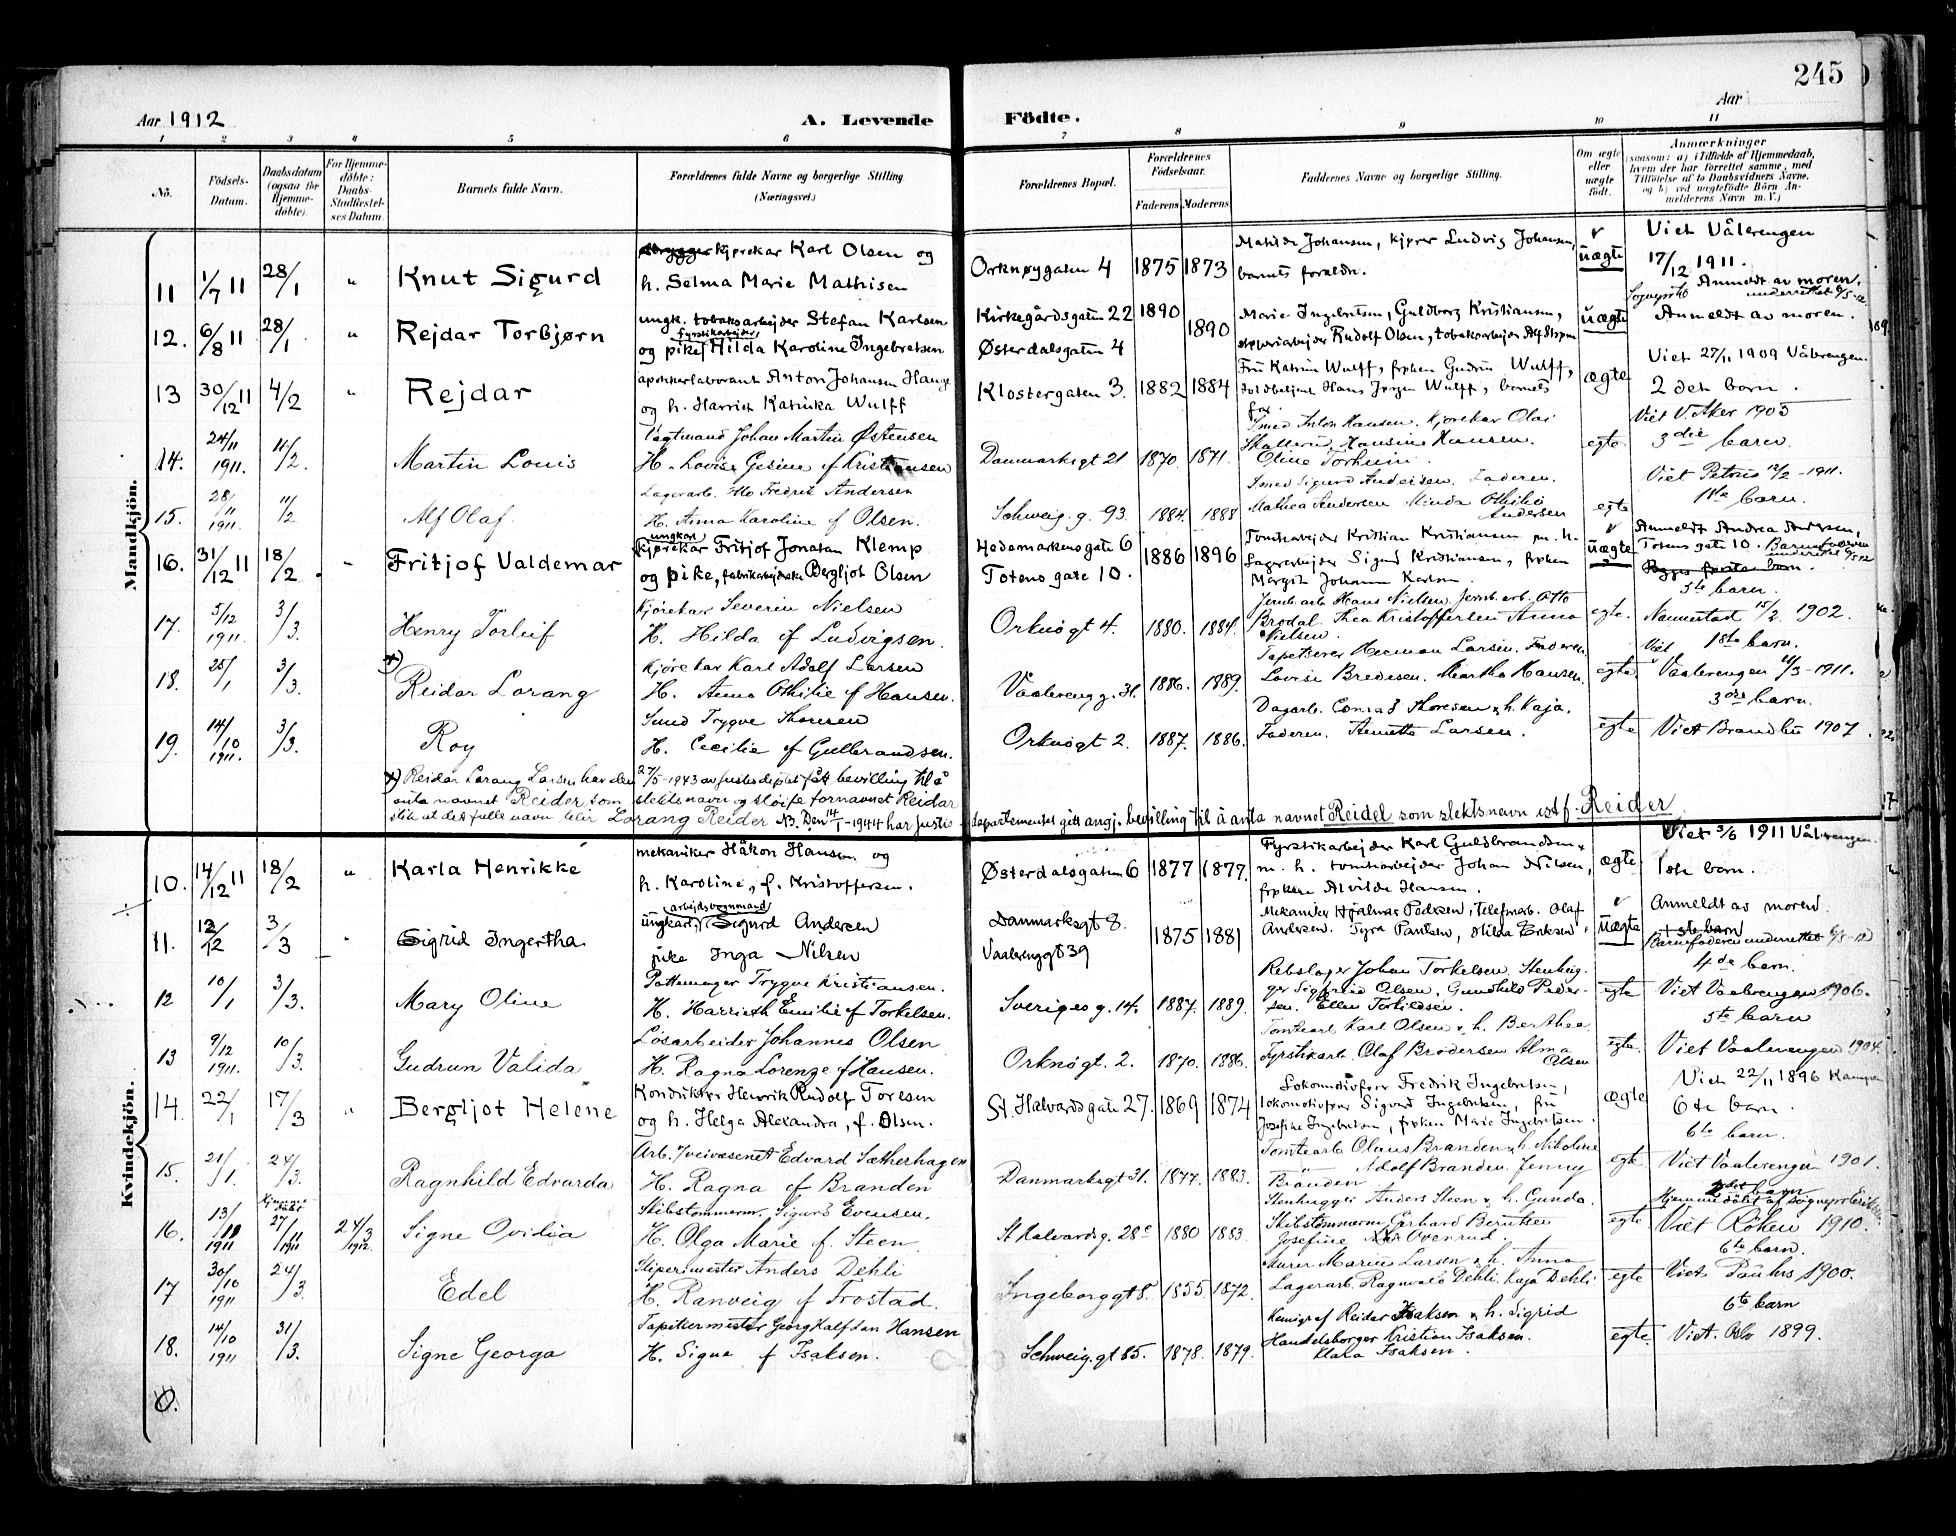 245
Aar 1912
A. Levende Födte.
Aar
1 2 3 4 5 6 7 8 9 10 11
No. Födsels-Datum. Daabsdatum (ogsaa for Hjemmedöbte). For Hjemmedöbte: Daabs-Stadfæstelses Datum. Barnets fulde Navn. Forældrenes fulde Navne og borgerlige Stilling. (Næringsvei.) Forældrenes Bopæl. Forældrenes Födselsaar. Faderens Moderens Faddernes Navne og borgerlige Stilling. Om ægte eller uægte födt. Anmærkninger (saasom: a) i Tilfælde af Hjemmedaab, hvem der har forrettet samme, med Tilföielse af to Daabsvidners Navne, og b) ved uægtefödte Börn Anmelderens Navn m. V.)
Mandkjön.
11 1/7 11 28/1 " Knut Sigurd kjørekar Karl Olsen og
h. Selma Marie Mathisen Orknøygaten 4 1875 1873 Matilde Johansen, kjører Ludvig Johansen,
barnets foreldre. uægte Viet Vålerengen
17/12 1911.
Anmeldt av moren.
12. 6/8 11 28/1 " Rejdar Torbjørn ungk. tobaksarbejder Stefan Karlsen
fyrstikarbejder
og pike Hilda Karoline Ingebretsen Kirkegårdsgaten 22 1890
Østerdalsgaten 4 1890 Marie Ingebretsen, Guldborg Kristiansen,
Rudolf Olsen, tobaksarbejder uægte Anmeldt av moren.
13 30/12 11 4/2 " Rejdar apotekerlaborant Anton Johansen Hauge
og h. Harriet Katinka Wulff Klostergaten 3. 1882 1884 Fru Katrine Wulff, frøken Gudrun Wulff,
Hans Jørgen Wulff, barnets
far. ægte Viet 27/11 1909 Vålerengen.
2 det barn.
14. 24/11 1911. 11/2. Martin Louis Vegtmand Johan Martin Østensen
H. Lovise Gesine f Kristiansen Danmarksgt 21 1870. 1871. Smed Anton Hansen. Kjørekar Olai
Hansine Hansen.
Oline Torheim. egte Viet V. Aker 1903
3die barn.
15. 28/11 1911. 11/2 Alf Olaf. Lagerarb. Otto Fredrik Andersen
H. Anna Karoline f Olsen. Schweig. g. 93. 1884. 1888 Smed Sigurd Andersen. Faderen.
Mathea Andersen Minda Othilie
Andersen egte Viet Petrus 12/2-1911.
1ste barn.
16. 31/12 11 18/2. " Fritjof Valdemar ungkar
kjørekar Fritjof Jonatan Klemp
og pike, fabrikarbejderske Bergljot Olsen Hedemarkensgate 6
Totens gate 10. 1886 1896 Tomtearbejder Kristian Kristiansen m. h.
Lagerarbejder Sigurd Kristiansen, frøken
Margit Johanne Karlsen. uægte Anmeldt Andrea Andersen,
Totens gate 10. Barnefaderen
underrettet
17. 5/12 1911. 3/3. Henry Torleif Kjørekar Severin Nielsen
H. Hilda f Ludvigsen. Orknögt 4. 1880. 1884. Jernb. arb. Hans Nielsen Jernb. arb. Otto
Brodal. Thea Kristoffersen Anna
Nielsen. egte. 5te barn.
Nannestad 15/2. 1902.
18. 25/1 3/3. x) Reidar Lorang Kjørekar Karl Adolf Larsen
H. Anna Othilie f Hansen. Vaalereng g. 31. 1886. 1889. Tapetserer Herman Larsen. Faderen.
Lovise Bredesen. Martha Hansen. egte 1ste barn.
Viet Vaalerengen 4/3-1911.
19. 14/10 1911. 3/3. Roy Smed Trygve Thoresen
H. Cecilie f Gulbrandsen. Orknögt 2. 1887. 1886. Dagarb. Conrad Thoresen & h. Kaja.
Faderen. Annette Larsen. egte 3die barn.
Viet Brandbu 1907.
x) Reidar Lorang Larsen har den 27/5-1943 av justisdeptet fått bevilling til å
anta navnet Reider som slektsnavn og sløife fornavnet Reidar
slik at det fulle navn blir Lorang Reider NB. Den 14/1-1944 har justisdepartementet gitt angj. bevilling til å anta navnet Reidel som slektsnavn istf. Reider
Kvindekjön.
10. 14/12 11 18/2 " Karla Henrikke mekaniker Håkon Hansen og
h. Karoline, f. Kristoffersen. Østerdalsgaten 6 1877 1877. Fyrstikarbejder Karl Guldbrandsen
m. h. tomtearbejder Johan Nilsen,
frøken Alvilde Hansen. ægte Viet 3/6 1911 Vålerengen.
1ste barn.
11. 12/12 3/3 " Sigrid Ingertha arbejdsvognmand
ungkar, Sigurd Andersen
pike Inga Nilsen Danmarksgt 8.
Vaalerenggt 39 1875 1881 Mekaniker Hjalmar Pedersen, telefonarb. Olaf
Andersen. Tyra Paulsen, Hilda Eriksen, uægte Anmeldt av moren.
1ste barn
Barnefaderen underrettet
12 10/1 3/3. Mary Oline Pottemager Trygve Kristiansen.
H. Harrieth Emilie f Torkelsen. Sveriges g. 14. 1887. 1889. Rebslager Johan Torkelsen. Stenhugger
Sigfried Olsen, Gunhild Pedersen.
Ellen Torkildsen. egte 4de barn.
Viet Vaalerengen 1906.
13 9/12 1911. 10/3. Gudrun Valida Løsarbeider Johannes Olsen
H. Ragna Lorenze f Hansen. Orknögt. 2. 1870. 1886. Tomtearb Karl Olsen & h. Berthea
Fyrstikarb. Olaf Brodersen Alma
Olsen egte. 5te barn
Viet Vaalerengen 1904.
14. 22/1 17/3 " Bergljot Helene Konduktør Henrik Rudolf Toresen
og h. Helga Alexandra, f. Olsen. St. Halvardsgate 27. 1869 1874 Lokomotivfører Fredrik Ingebretsen,
lokomotivfører Sigurd Ingebretsen, fru
Josefine Ingebretsen, frøken Marie Ingebretsen. ægte Viet 22/11 1896 Kampen
6te barn.
15. 21/1. 24/3. Ragnhild Edvarda Arb. i veivæsenet Edvard Sætherhagen
H. Ragna f Branden Danmarksgt 31. 1877. 1883. Tomtearb Olaus Branden & h. Nikoline
Adolf Branden. Jenny
Branden egte 6te barn.
Viet Vaalerengen 1901.
16. 13/10 1911 Hjemmedøbt 27/11 1911 24/3 1912. Signe Ovidia Skibstømmerm. Sigurd Evensen.
H. Olga Marie f. Steen St Halvardsg. 28c 1880 1883. Stenhugger Anders Steen & h. Gunda.
Skibstømmerm Gerhard Berntsen
Josefine Ovenrud. egte barn
Hjemmedøbt af sogneprest
Viet Röken 1910.
17 30/10 1911 24/3. Edel Stipermester Anders Dehli
H. Ranveig f Frostad. Ingeborggt 8. 1855. 1872. Murer Marius Larsen & h. Anna
Lagerarb. Ragnvald Dehli. Kaja Dehli. egte 6te barn.
Viet Paulus 1900.
18. 14/10 1911 31/3. Signe Georga Tapetsermester Georg Halfdan Hansen
H. Signe f Isaksen. Schweig. gt 85. 1878. 1879. Kemigraf Reidar Isaksen & h. Sigrid
Handelsborger Kristian Isaksen.
Klara Isaksen. egte 6te barn
Viet. Oslo 1899.
0.